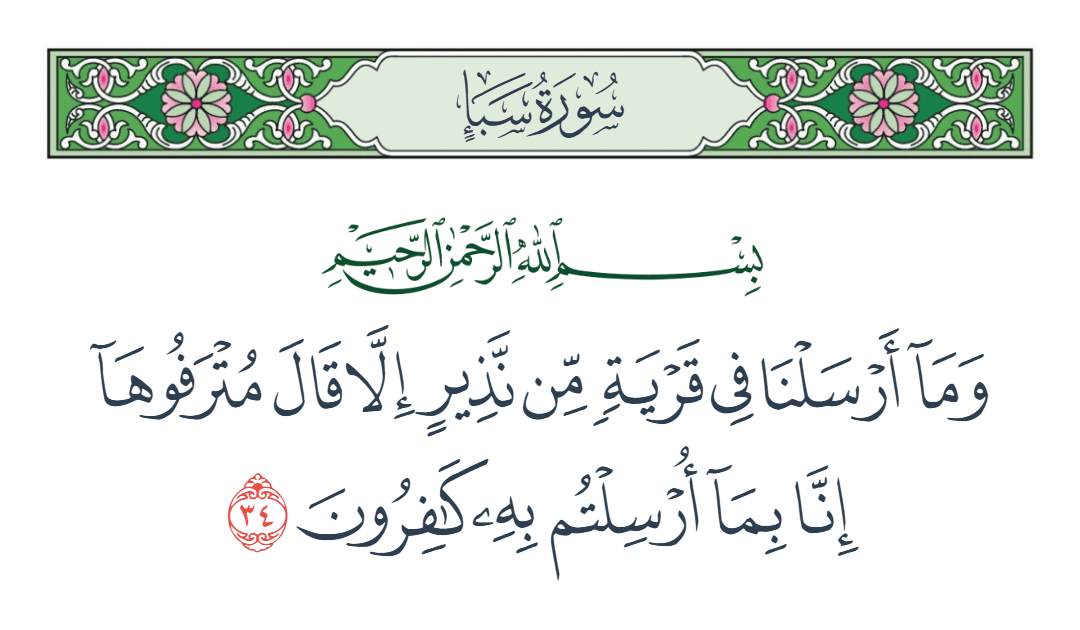 سُورَةُ سَبَإٍ
بِسْمِ ٱللَّهِ ٱلرَّحْمَٰنِ ٱلرَّحِيمِ
وَمَآ أَرْسَلْنَا فِي قَرْيَةٍ مِّن نَّذِيرٍ إِلَّا قَالَ مُتْرَفُوهَآ
إِنَّا بِمَآ أُرْسِلْتُم بِهِۦ كَٰفِرُونَ ٣٤